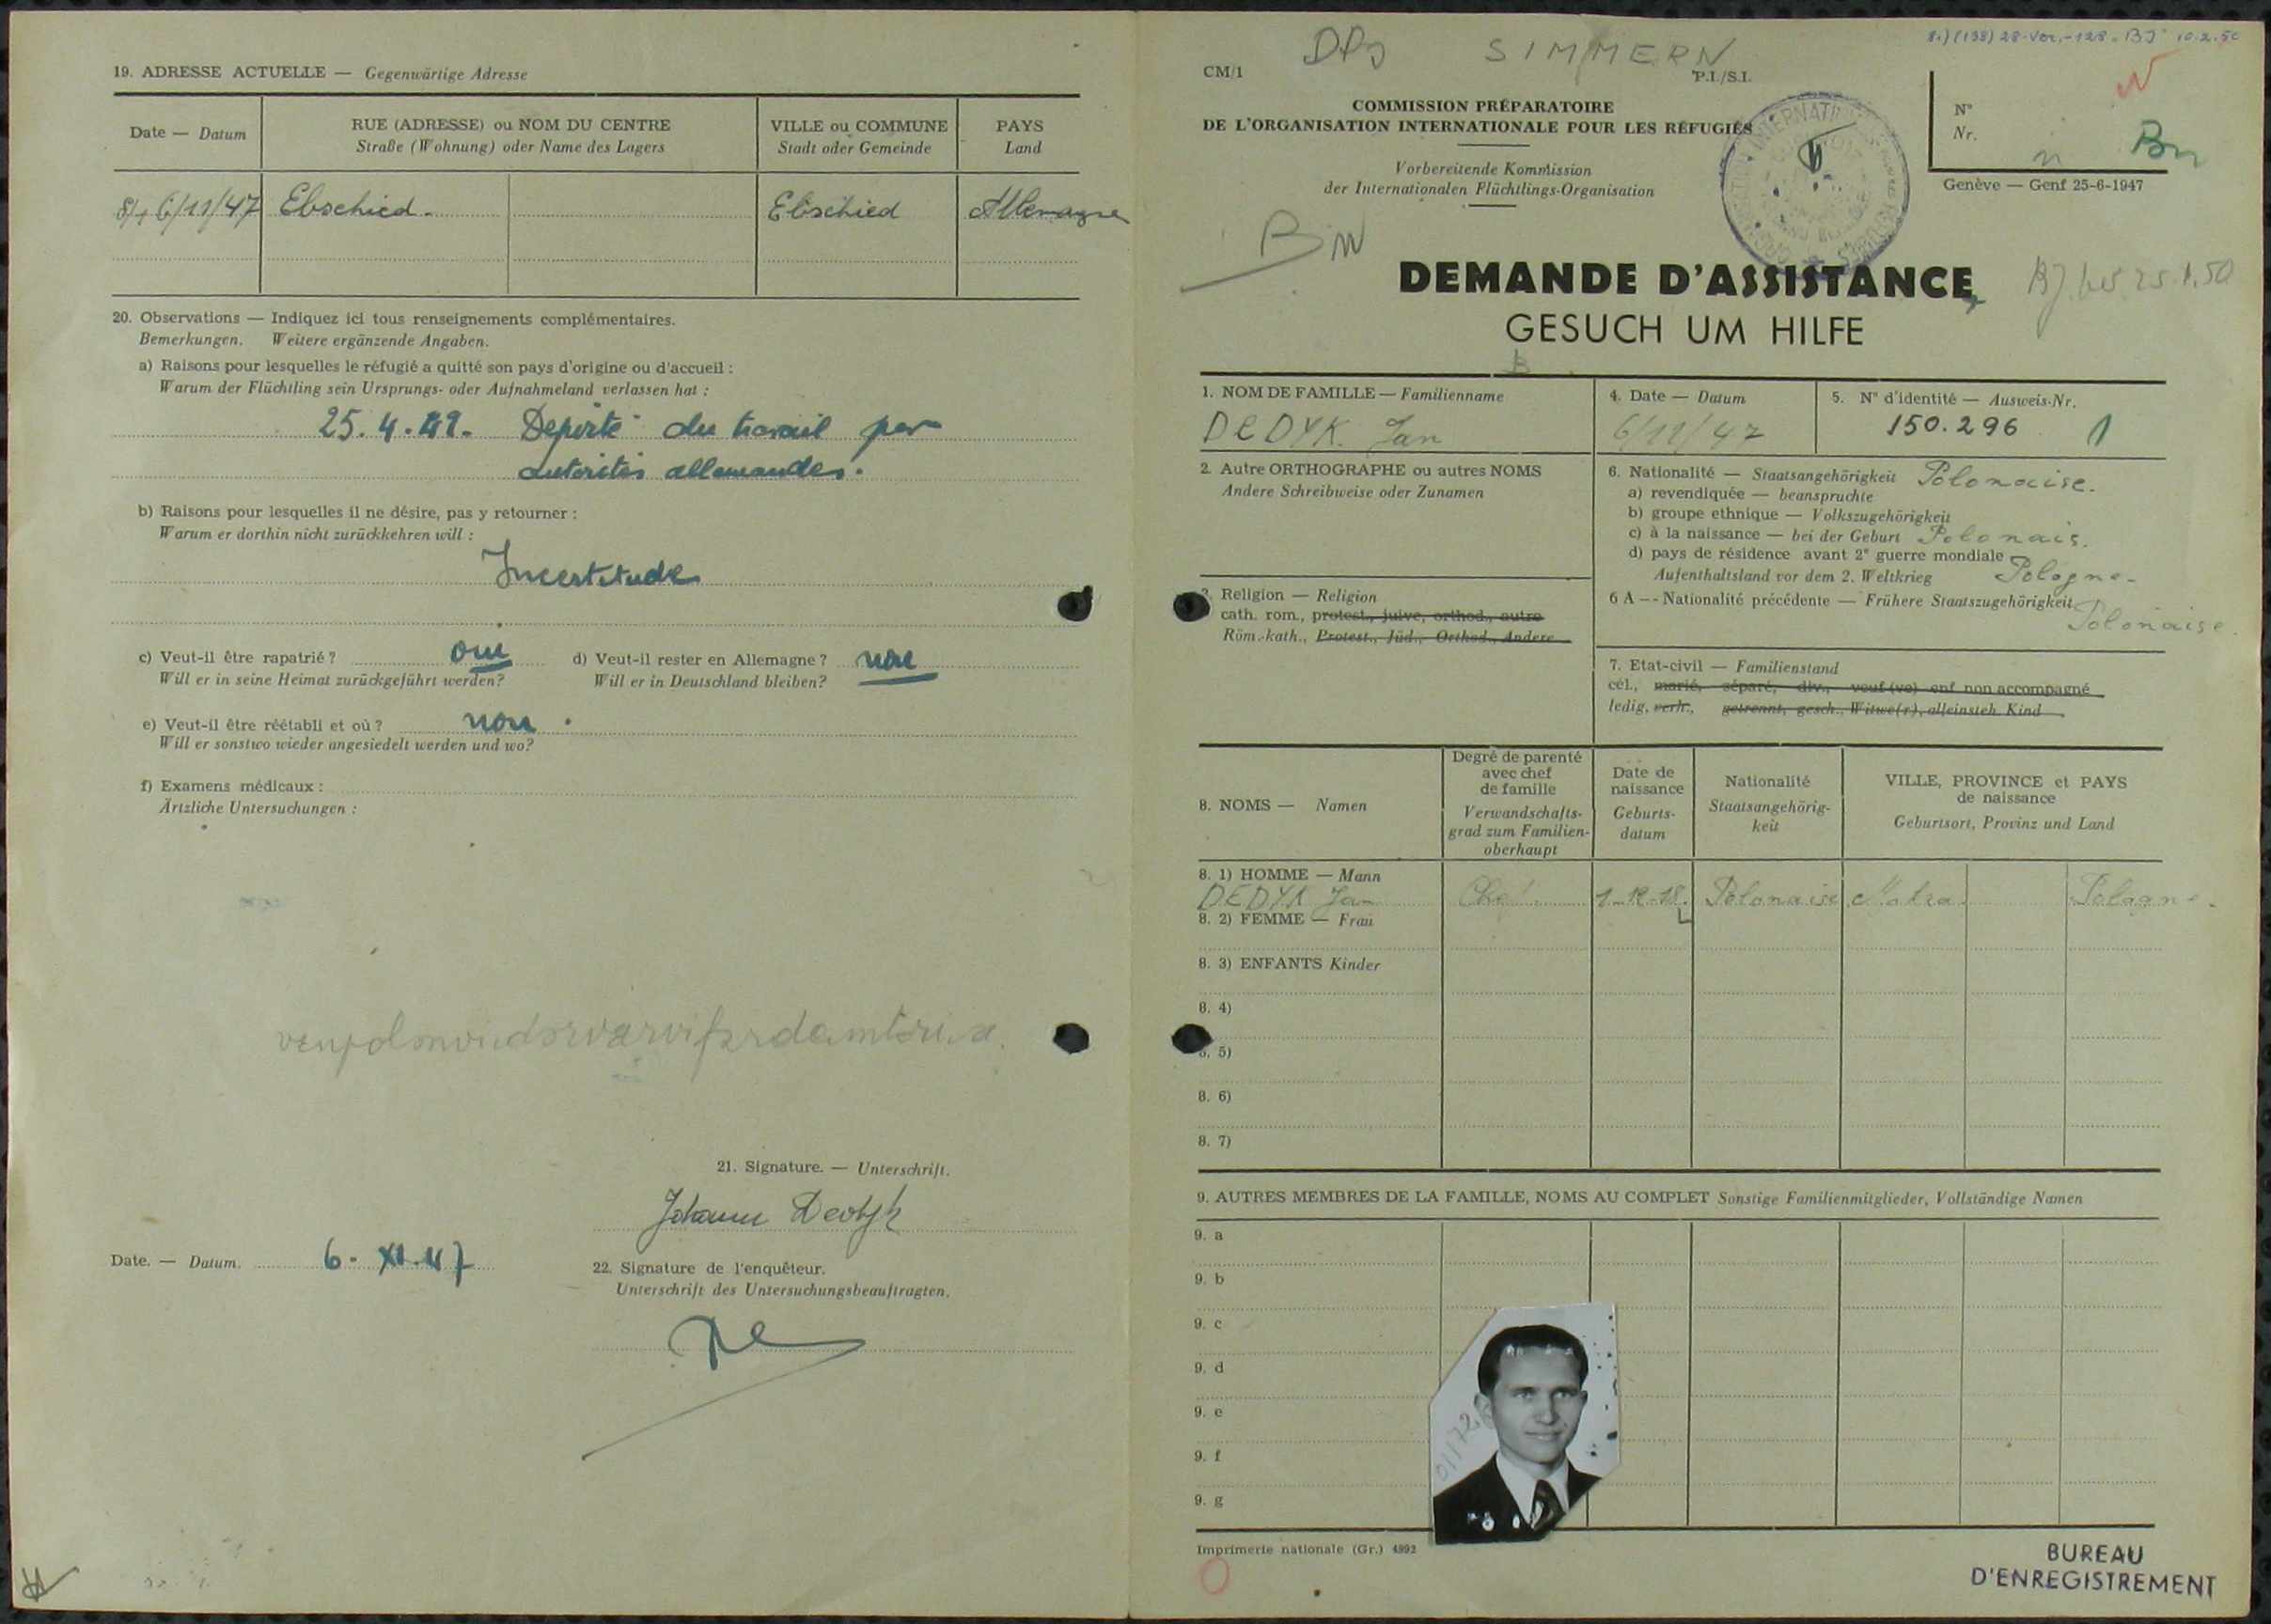 19. ADRESSE ACTUELLE — Gegenwärtige Adresse
Date — Datum
RUE (ADRESSE) ou NOM DU CENTRE
Straße (Wohnung) oder Name des Lagers
VILLE ou COMMUNE
Stadt oder Gemeinde
PAYS
Land
6/11/47 Ebschied. Ebschied Allemagne
20. Observations — Indiquez ici tous renseignements complémentaires.
Bemerkungen. Weitere ergänzende Angaben.
a) Raisons pour lesquelles le réfugié a quitté son pays d'origine ou d'accueil :
Warum der Flüchtling sein Ursprungs- oder Aufnahmeland verlassen hat :
25. 4. Deporté du travail par
autorités allemandes.
b) Raisons pour lesquelles il ne désire, pas y retourner :
Warum er dorthin nicht zurückkehren will :
Incertitude
c) Veut-il être rapatrié ? oui d) Veut-il rester en Allemagne ? non
Will er in seine Heimat zurückgeführt werden? Will er in Deutschland bleiben?
e) Veut-il être réétabli et où ? non .
Will er sonstwo wieder angesiedelt werden und wo?
f) Examens médicaux :
Ärtzliche Untersuchungen :
21. Signature. — Unterschrift.
Johann Dedyk
Date. — Datum. 6. XI. 47
22. Signature de l'enquêteur.
Unterschrift des Untersuchungsbeauftragten.
DPs SIMMERN
CM/1 P.I./S.I.
COMMISSION PRÉPARATOIRE
DE L'ORGANISATION INTERNATIONALE POUR LES RÉFUGIÉS
Vorbereitende Kommission
der Internationalen Flüchtlings-Organisation
N
N°
Nr.
n Bn
Genève — Genf 25-6-1947
BN
DEMANDE D'ASSISTANCE
GESUCH UM HILFE
B
1. NOM DE FAMILLE — Familienname
DEDYK. Jan
4. Date — Datum
6/11/47
5. N° d'identité — Ausweis-Nr.
150.296 1
2. Autre ORTHOGRAPHE ou autres NOMS
Andere Schreibweise oder Zunamen
6. Nationalité — Staatsangehörigkeit Polonaise.
a) revendiquée — beanspruchte
b) groupe ethnique — Volkszugehörigkeit
c) à la naissance — bei der Geburt Polonais.
d) pays de résidence avant 2e guerre mondiale
Aufenthaltsland vor dem 2. Weltkrieg Pologne.
6 A -- Nationalité précédente — Frühere Staatszugehörigkeit
Polonaise.
3. Religion — Religion
cath. rom., protest., juive, orthod., autre
Röm.-kath., Protest., Jüd., Orthod., Andere
7. Etat-civil — Familienstand
cél., marié, séparé, div., veuf (ve) enf non accompagné
ledig, verh., getrennt, gesch., Witwe(r), alleinsteh. Kind
8. NOMS — Namen
Degré de parenté
avec chef
de famille
Verwandschafts-
grad zum Familien-
oberhaupt
Date de
naissance
Geburts-
datum
Nationalité
Staatsangehörig-
keit
VILLE, PROVINCE et PAYS
de naissance
Geburtsort, Provinz und Land
8. 1) HOMME — Mann
DEDYK Jan Chef Polonaise Pologne.
8. 2) FEMME — Frau
8. 3) ENFANTS Kinder
8. 4)
8. 5)
8. 6)
8. 7)
9. AUTRES MEMBRES DE LA FAMILLE, NOMS AU COMPLET Sonstige Familienmitglieder, Vollständige Namen
9. a
9. b
9. c
9. d
9. e
9. f
9. g
Imprimerie nationale (Gr.) 4892
BUREAU
D'ENREGISTREMENT